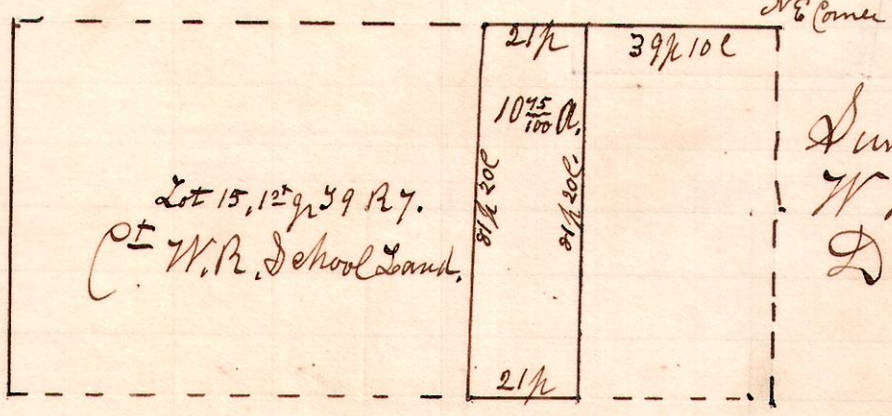 NE Corner
21p
39p 10l
10 75/100 A.
81p 20l
81p 20l.
Lot 15, 1st qr T9 R7.
Ct W.R. School Land.
21p
W
D